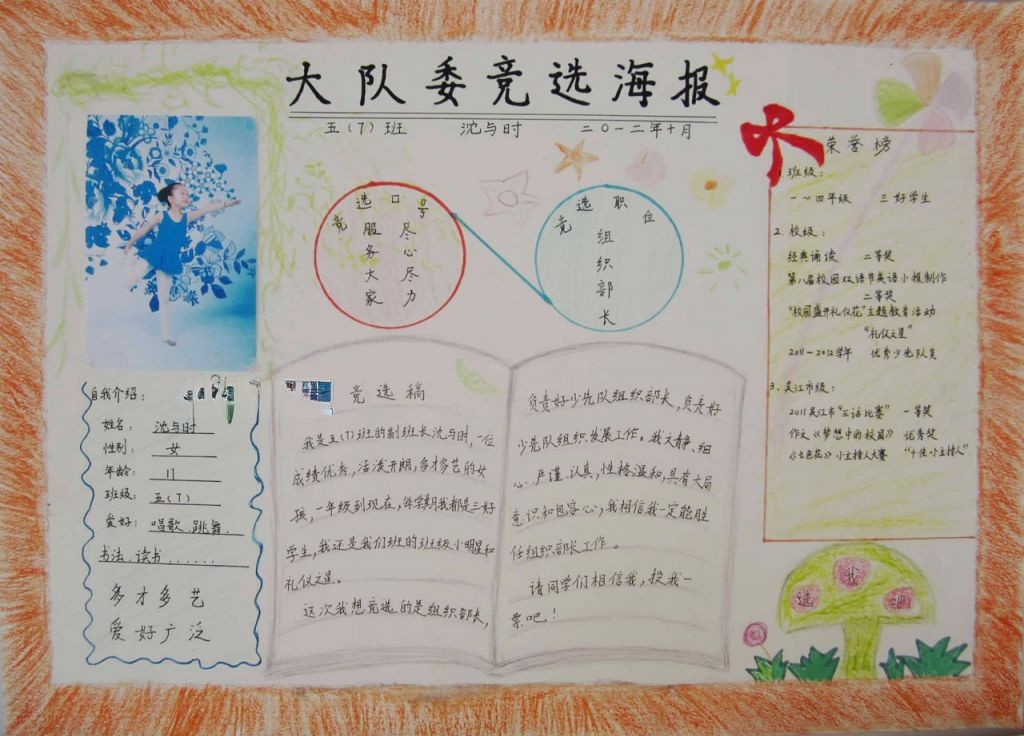 大队委竞选海报
五(7)班 沈与时 二〇一二年十月
竞选口号
尽心尽力
服务大家
竞选职位
组织部长
荣誉榜
1.班级：
一～四年级 三好学生
2.校级：
经典诵读 二等奖
第八届校园双语节英语小报制作
二等奖
“校园盛开礼仪花”主题教育活动
“礼仪之星”
2011～2012学年 优秀少先队员
3.吴江市级：
2011吴江市“三话比赛” 一等奖
作文《梦想中的校园》 优秀奖
《七色花》小主持人大赛 “十佳小主持人”
自我介绍：
姓名：沈与时
性别：女
年龄：11
班级：五(7)
爱好：唱歌、跳舞、
书法、读书......
多才多艺
爱好广泛
竞选稿
我是五(7)班的副班长沈与时，一位
成绩优秀，活泼开朗，多才多艺的女
孩，一年级到现在，每学期我都是三好
学生，我还是我们班的班级小明星和
礼仪之星。
这次我想竞选的是组织部长，
负责好少先队组织部长，负责好
少先队组织发展工作。我文静、细
心、严谨、认真，性格温和，具有大局
意识和包容心，我相信我一定能胜
任组织部长工作。
请同学们相信我，投我一
票吧！
选我吧